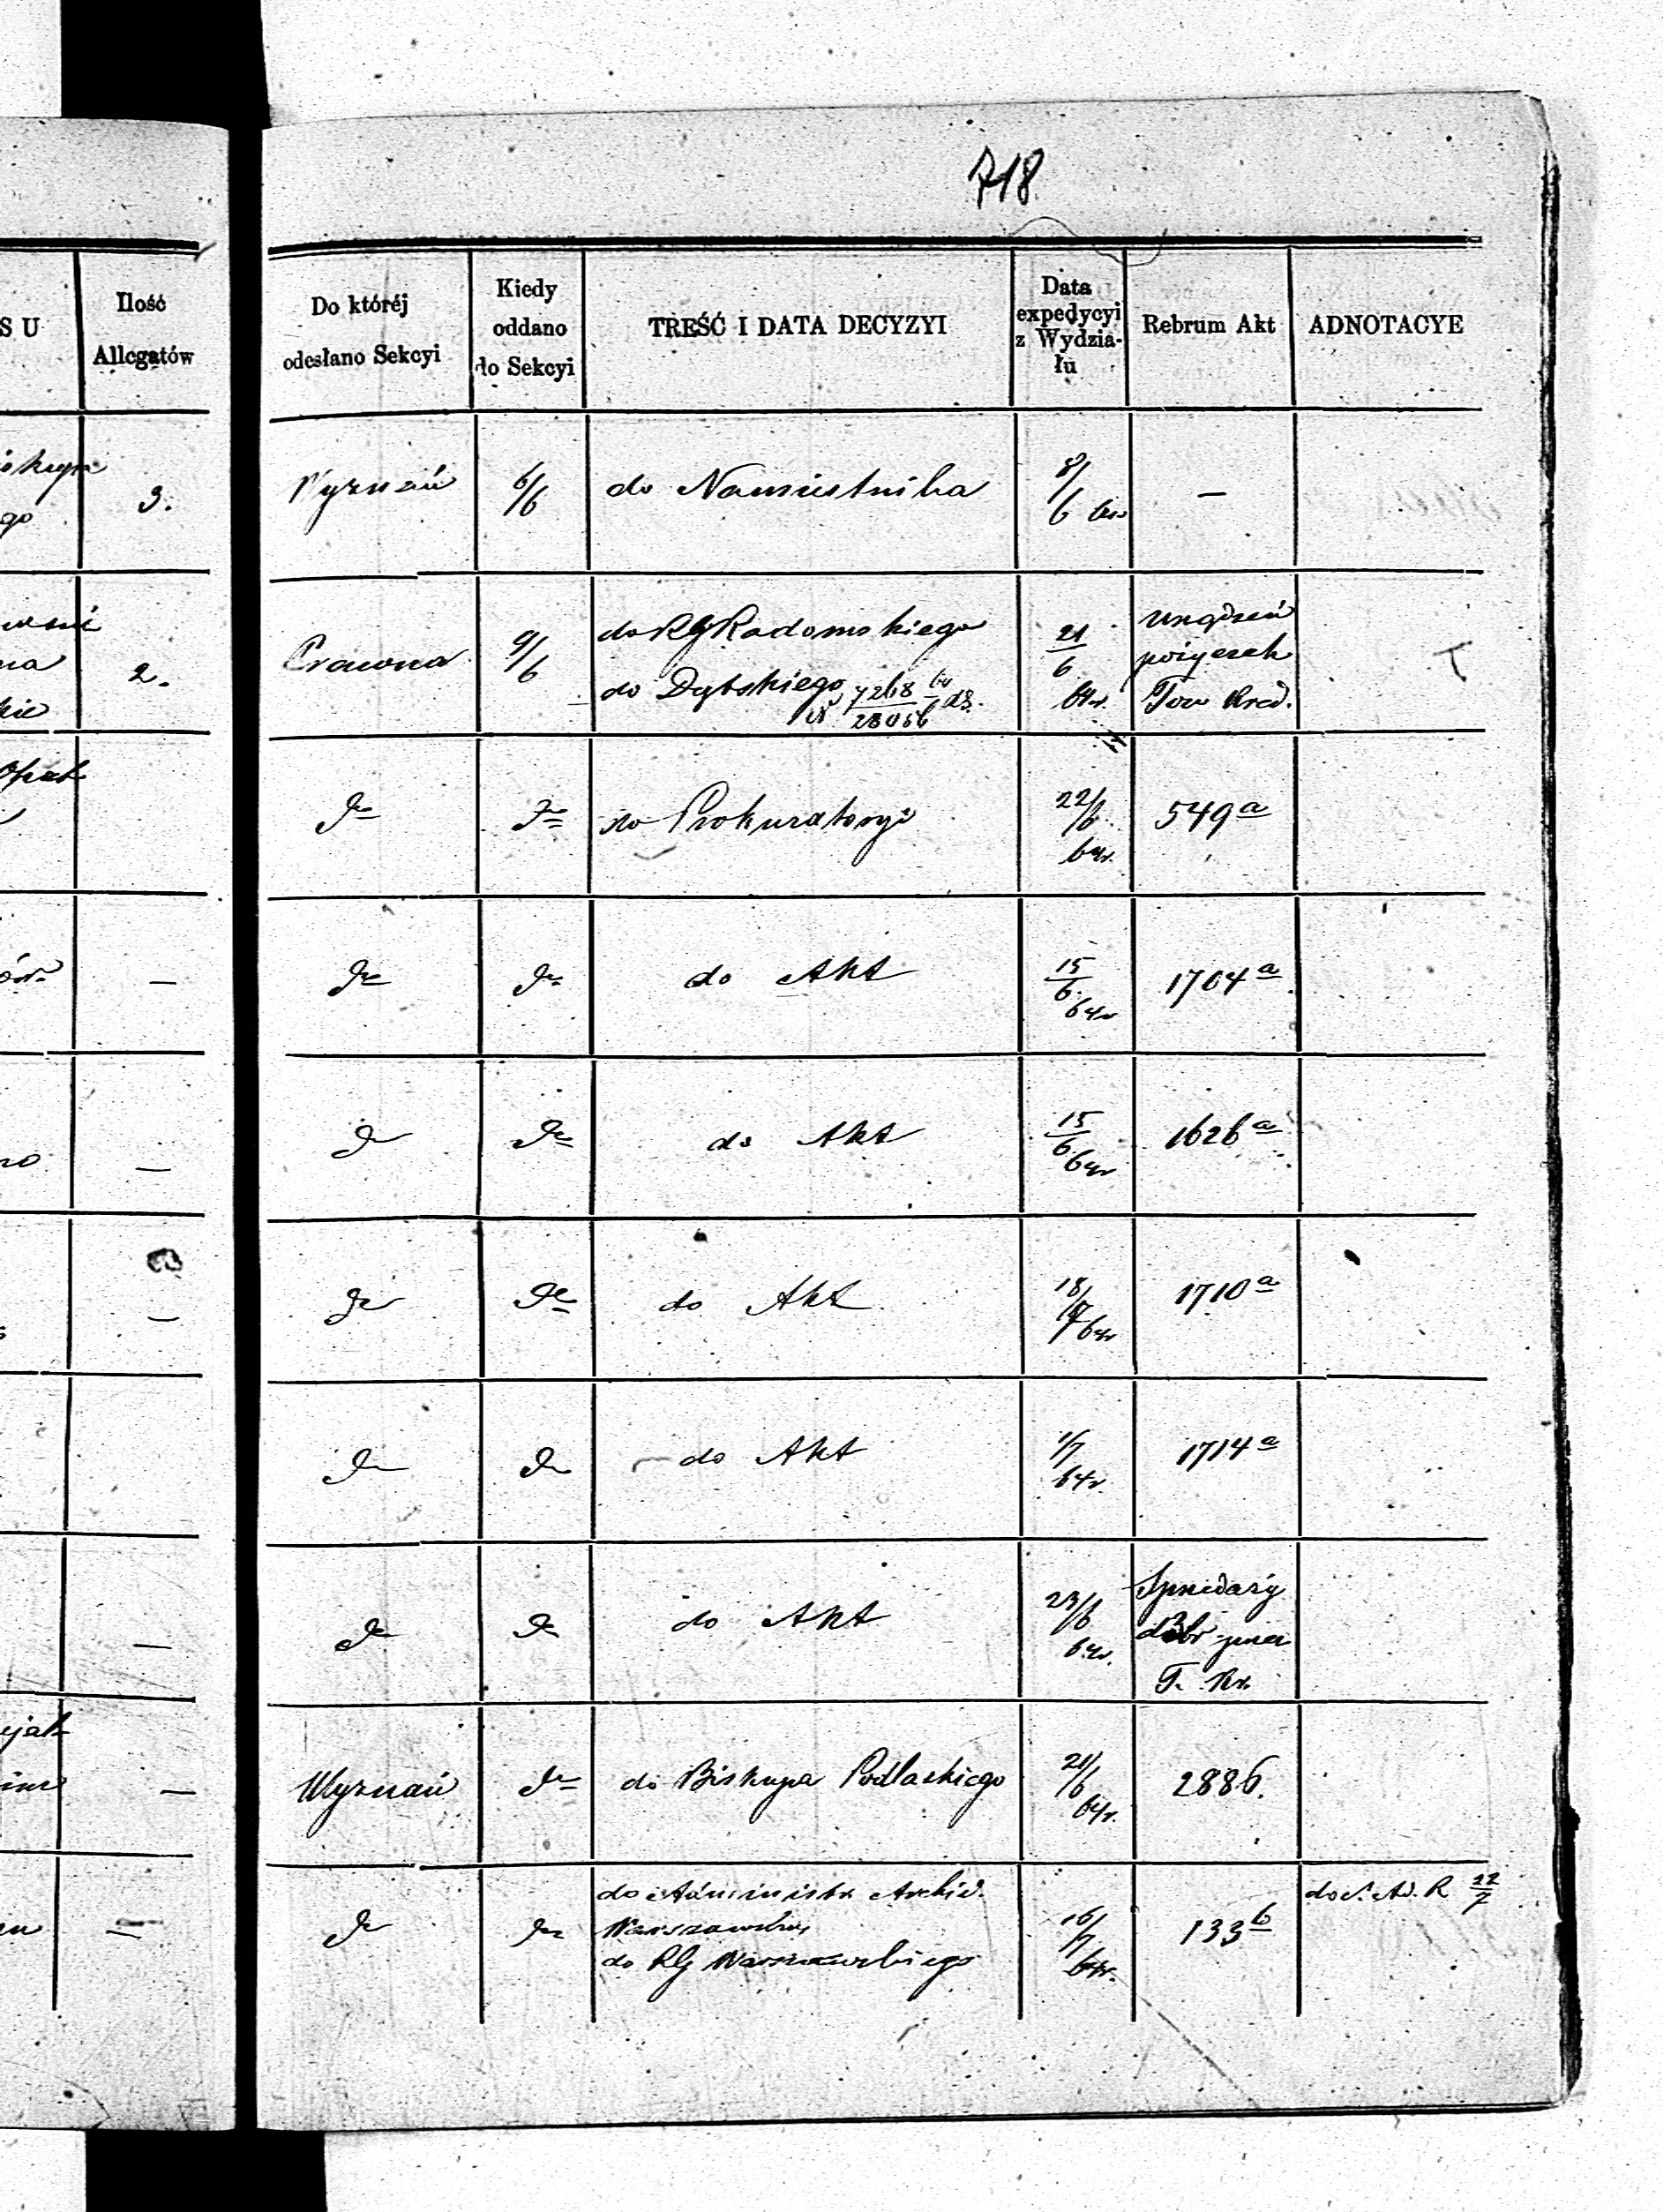 718
S U
Ilość
Allegatów
Do któréj
odesłano Sekcyi
Kiedy
oddano
do Sekcyi
TREŚĆ I DATA DECYZYI
Data
expedycyi
z Wydzia-
łu
Rebrum Akt
ADNOTACYE
go
3.
Wyznań
6/6
do Namiestnika
8/6
—
na
2.
Prawna
9/6
do RG Radomskiego
do Dybskiego
21/6
64r.
urządzeń
pożyczek
Tow Kred.
do
do
do Prokuratoryi
22/6
64r.
549 a
—
do
do
do Akt
15/6
64r
1704 a
—
do
do
do Akt
15/6
64r
1626 a
—
do
do
do Akt
18/7
64r
1710 a
do
do
do Akt
1/7
64r.
1714 a
—
do
do
do Akt
23/6
64r.
Sprzedaży
dóbr przez
T. Kr.
—
Wyznań
do
do Biskupa Podlaskiego
21/6
64r.
2886.
—
do
do
do Administr Archid.
Warszawskiej
do RG Warszawskiego
16/7
64r.
133 b
22/7